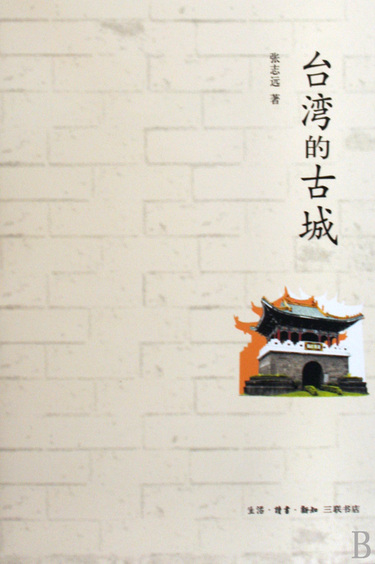 台湾的古城
张志远 著
生活·讀書·新知 三联书店
B